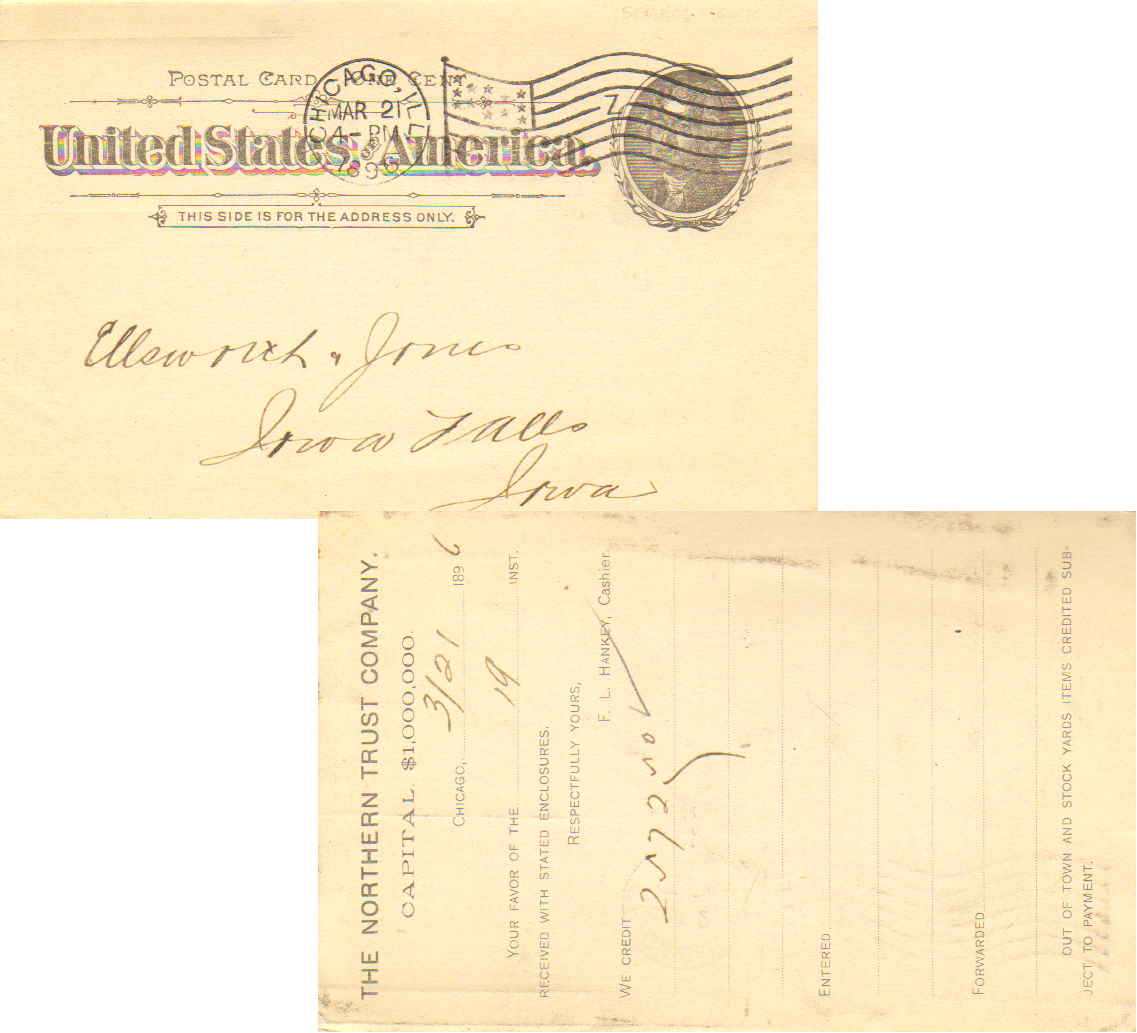 POSTAL CARD ONE CENT.
CHICAGO, ILL.
MAR 21
4-PM
Z
United States, America.
THIS SIDE IS FOR THE ADDRESS ONLY.
Ellsworth & Jones
Iowa Falls
Iowa
THE NORTHERN TRUST COMPANY.
CAPITAL $1,000,000.
CHICAGO, 3/21 1896
YOUR FAVOR OF THE 19 INST.
RECEIVED WITH STATED ENCLOSURES.
RESPECTFULLY YOURS,
F. L. HANKEY, Cashier
WE CREDIT
ENTERED
FORWARDED
OUT OF TOWN AND STOCK YARDS ITEMS CREDITED SUB-
JECT TO PAYMENT.